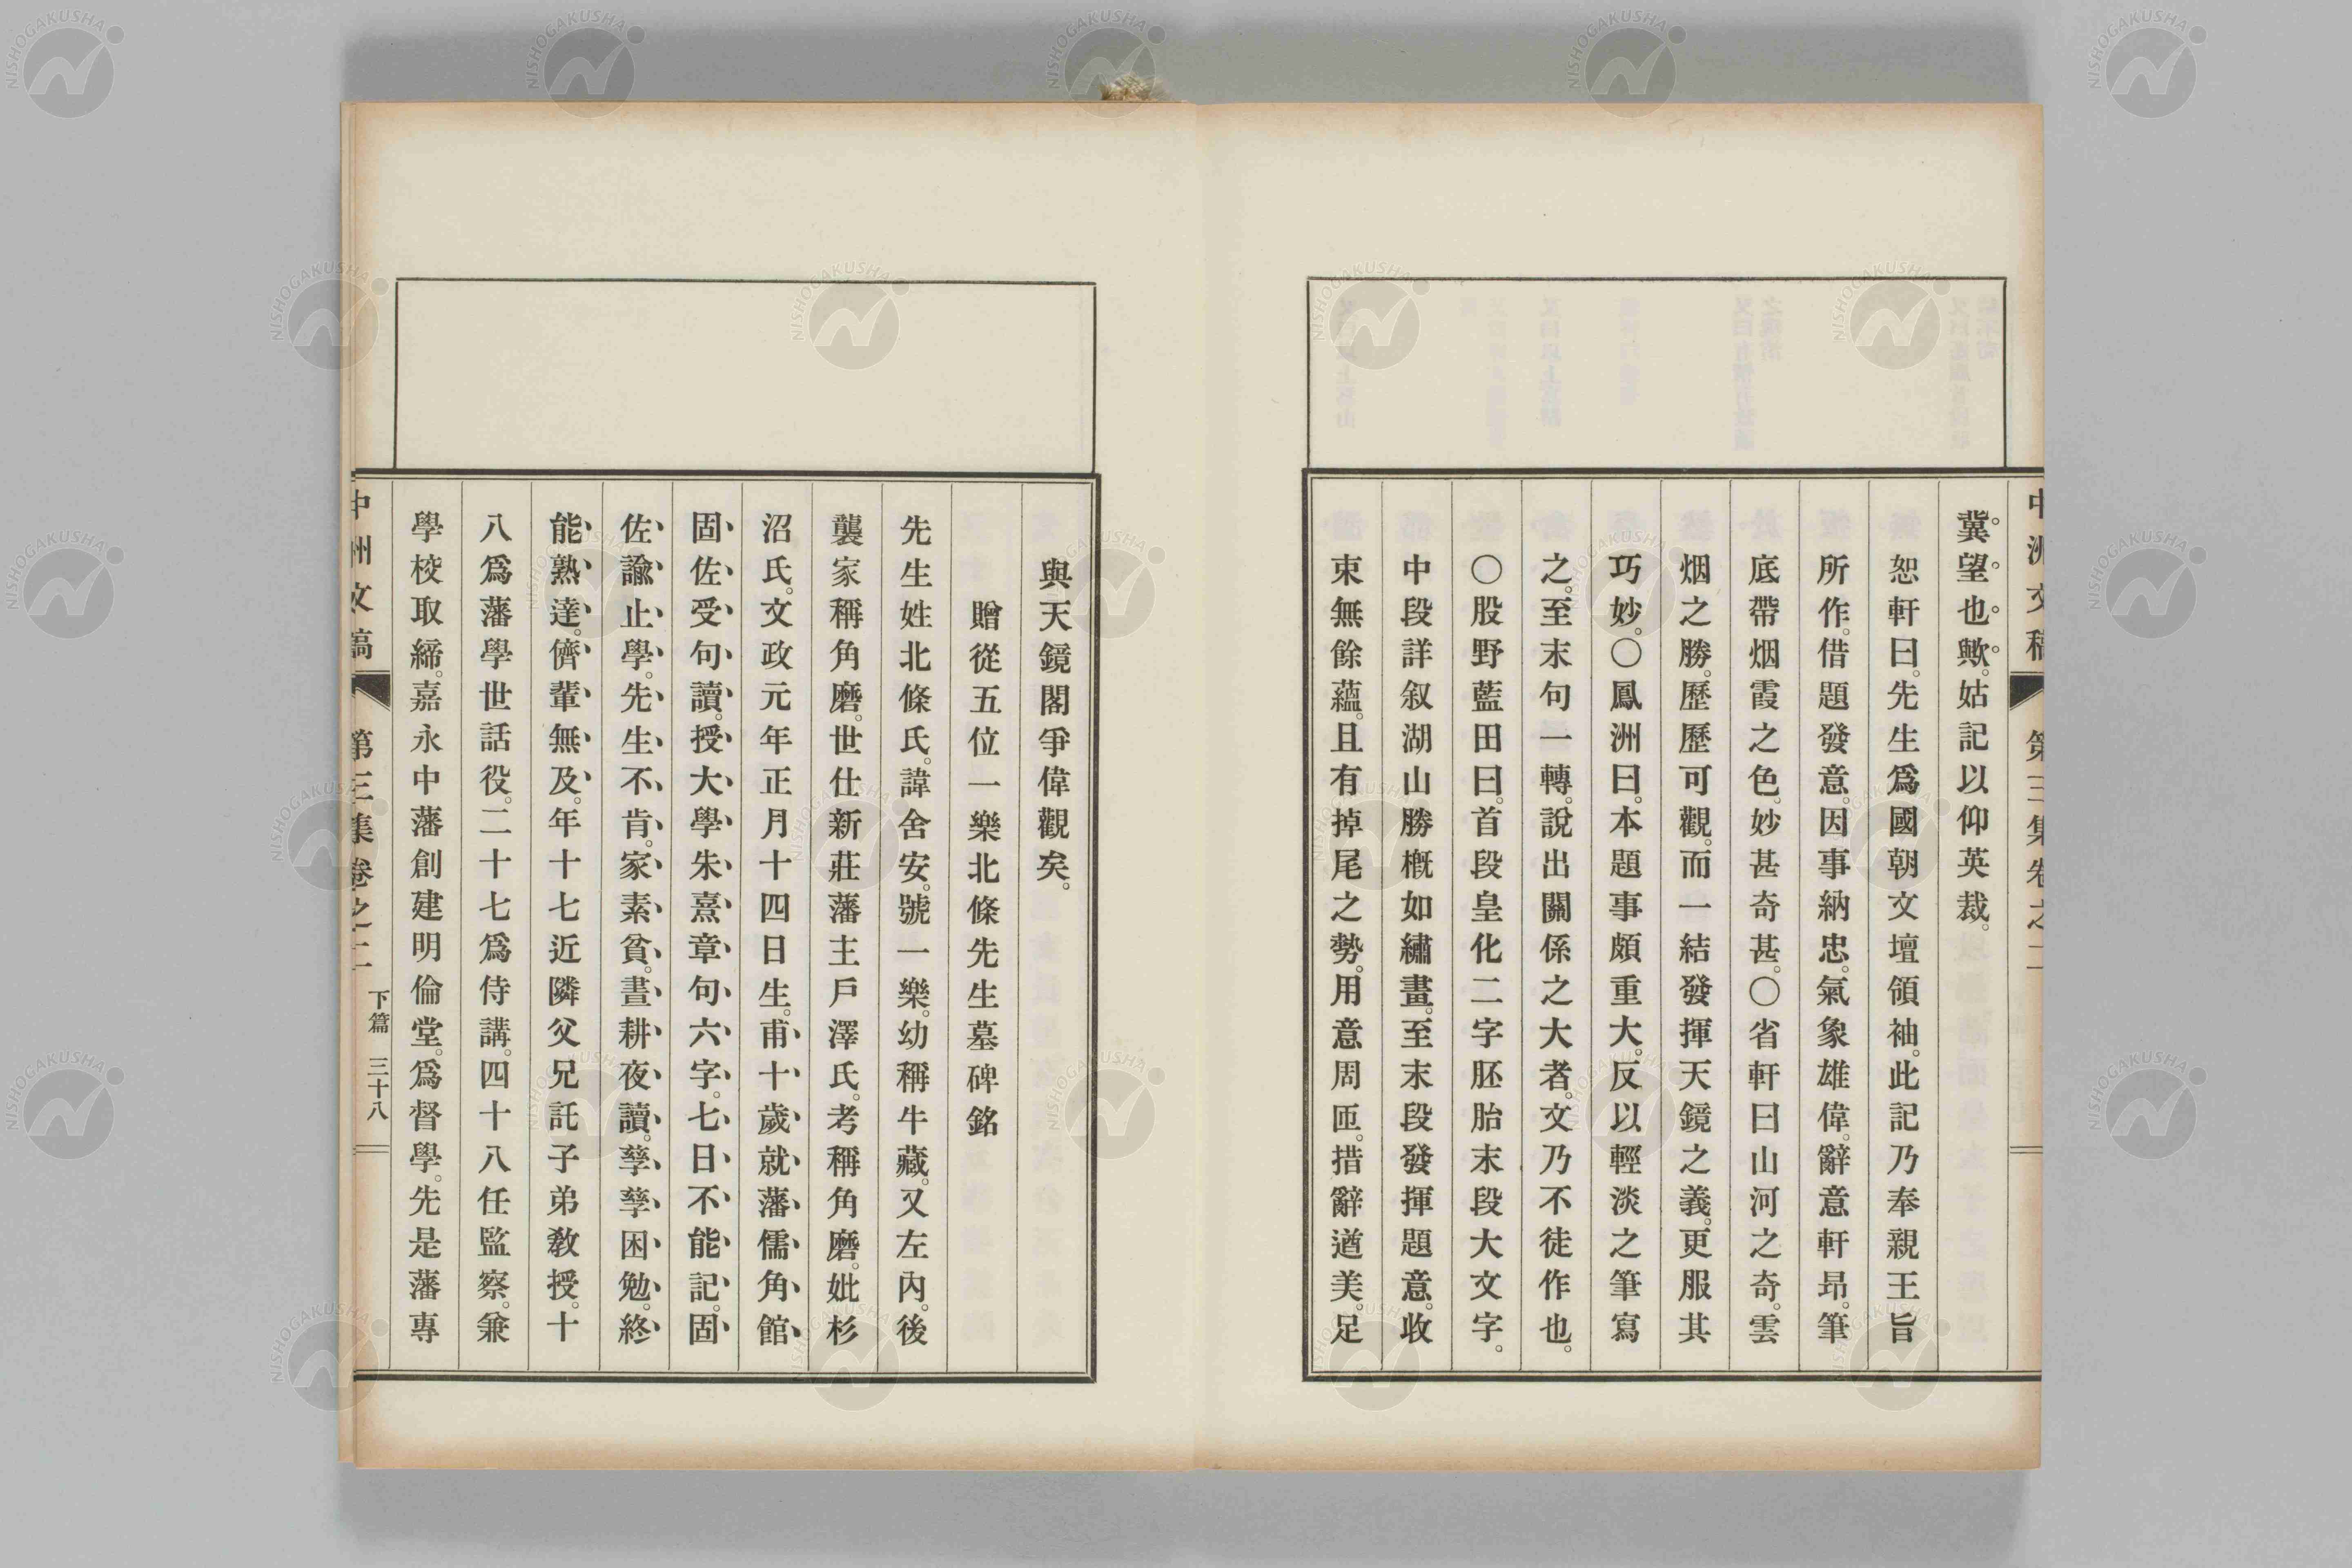 冀望也歟。姑記以仰英裁。
恕軒曰。先生爲國朝文壇領袖。此記乃奉親王旨
所作。借題發意。因事納忠。氣象雄偉。辭意軒昂。筆
底帶烟霞之色。妙甚奇甚。○省軒曰山河之奇。雲
烟之勝。歷歷可觀。而一結發揮天鏡之義。更服其
巧妙。○鳳洲曰。本題事頗重大。反以輕淡之筆寫
之。至末句一轉。說出關係之大者。文乃不徒作也。
○股野藍田曰。首段皇化二字胚胎末段大文字。
中段詳叙湖山勝槪如繡畫。至末段發揮題意。收
束無餘蘊。且有掉尾之勢。用意周匝。措辭遒美。足
與天鏡閣爭偉觀矣。
贈從五位一樂北條先生墓碑銘
先生姓北條氏。諱舍安。號一樂。幼稱牛藏。又左內。後
襲家稱角磨。世仕新莊藩主戶澤氏。考稱角磨。妣杉
沼氏。文政元年正月十四日生。甫十歲就藩儒角館
固佐受句讀。授大學朱熹章句六字。七日不能記。固
佐諭止學。先生不肯。家素貧。晝耕夜讀。孳孳困勉。終
能熟達。儕輩無及。年十七近隣父兄託子弟敎授。十
八爲藩學世話役。二十七爲侍講。四十八任監察。兼
學校取締。嘉永中藩創建明倫堂。爲督學。先是藩專
中洲文稿 第三集卷之二 下篇 三十八